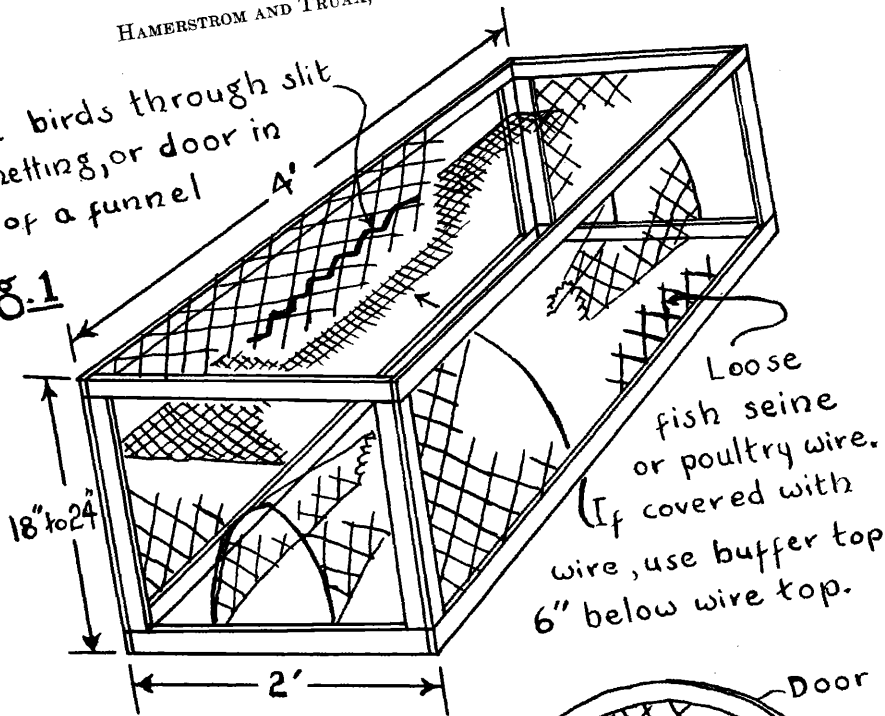 HAMERSTROM AND TRUAX,
birds through slit
netting, or door in
of a funnel
4'
g.1
18" to 24"
2'
Loose
fish seine
or poultry wire.
(If covered with
wire, use buffer top
6" below wire top.
Door